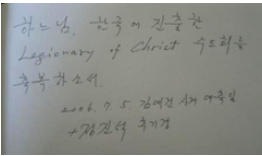 하느님, 한국에 진출한
Legionary of Christ 수도회를
축복하소서.
2006. 7. 5. 김대건 사제 대축일
+정진석 추기경